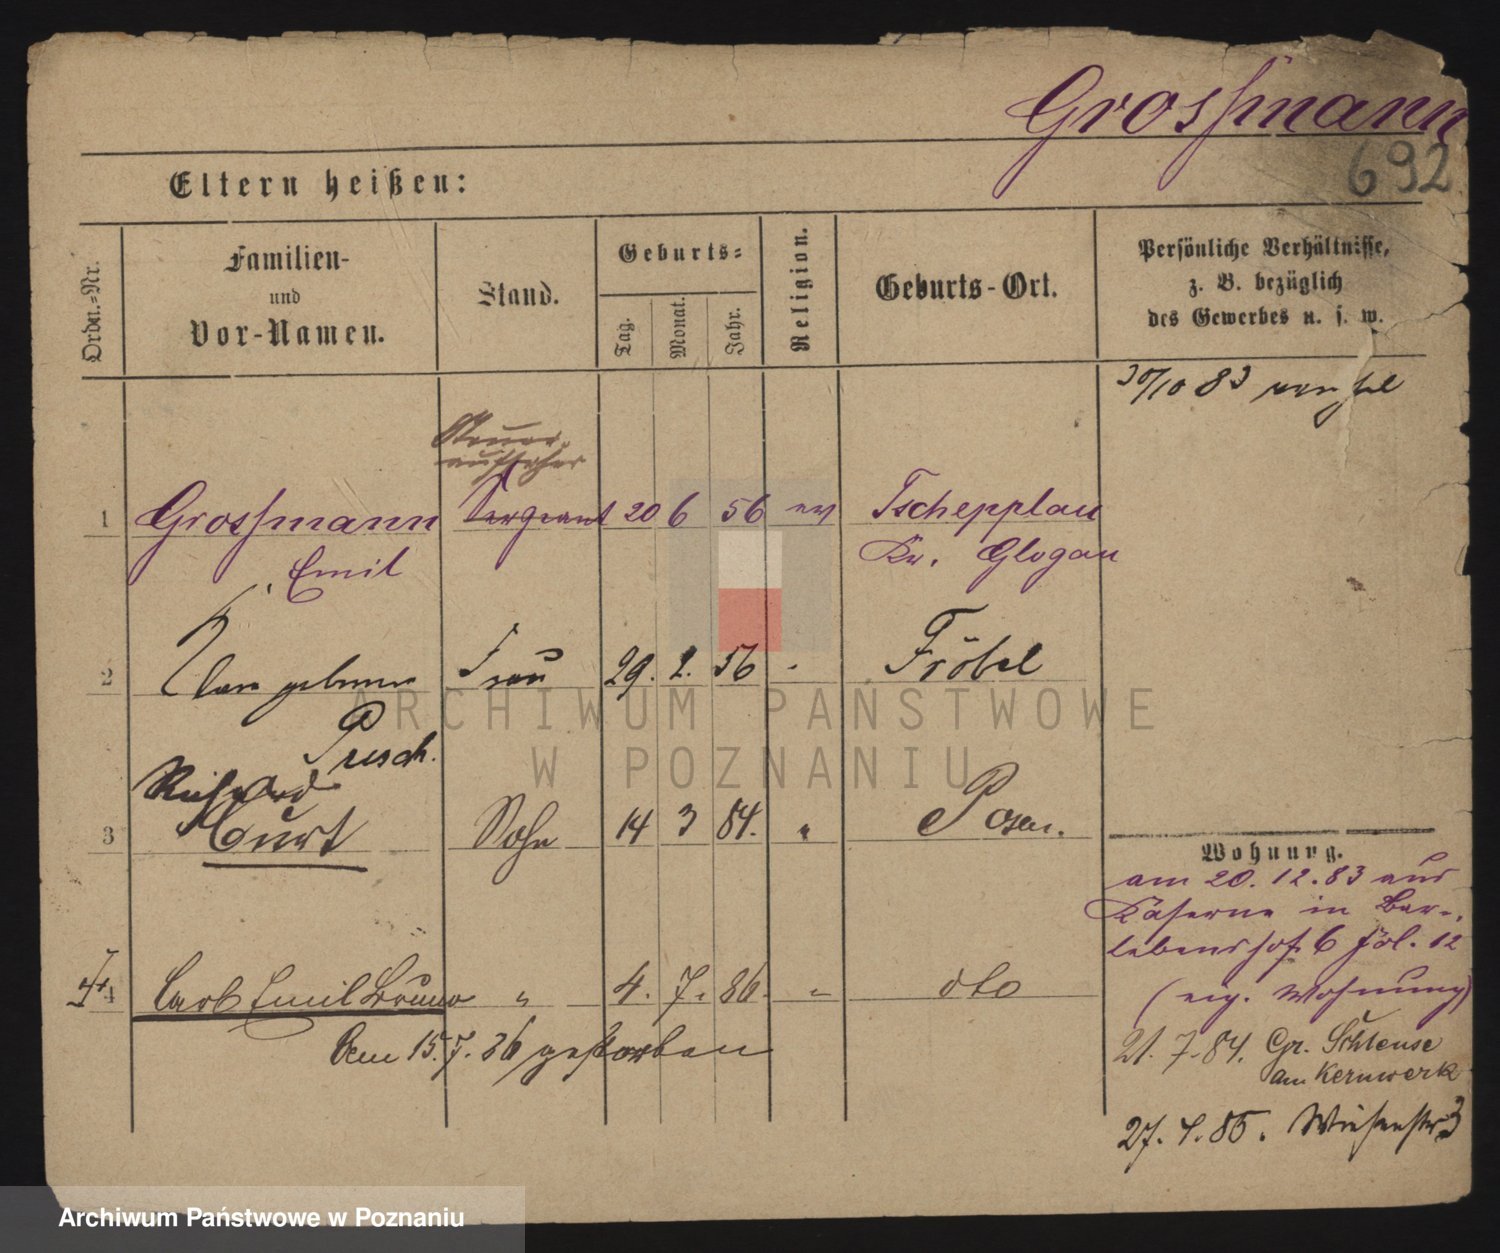 Grossmann
692
Eltern heißen:
Ordn.=Nr.
Familien-
und
Vor-Namen.
Stand.
Geburts=
Tag.
Monat.
Jahr.
Religion.
Geburts-Ort.
Persönliche Verhältnisse,
z. B. bezüglich
des Gewerbes u. s. w.
30/10 83
Steuer-
aufseher
1 Grossmann Sergeant 20 6 56 ev Tschepplau
Emil Kr. Glogau
2 geborene Frau 29. 2. 56 - Fröbel
Pusch.
Richard
3 Curt Sohn 14 3 84. " Posen.
4 Carl Emil Bruno " 4. 7. 86. " dto
Am 15.7.86 gestorben
Wohnung.
am 20.12.83 aus
Kaserne in Bar-
lebenshof 6 Fol. 12
(eig. Wohnung)
21.7.84. Gr. Schleuse
am Kernwerk
27.4.85. Wiesenstr 3
ARCHIWUM PAŃSTWOWE
W POZNANIU
Archiwum Państwowe w Poznaniu